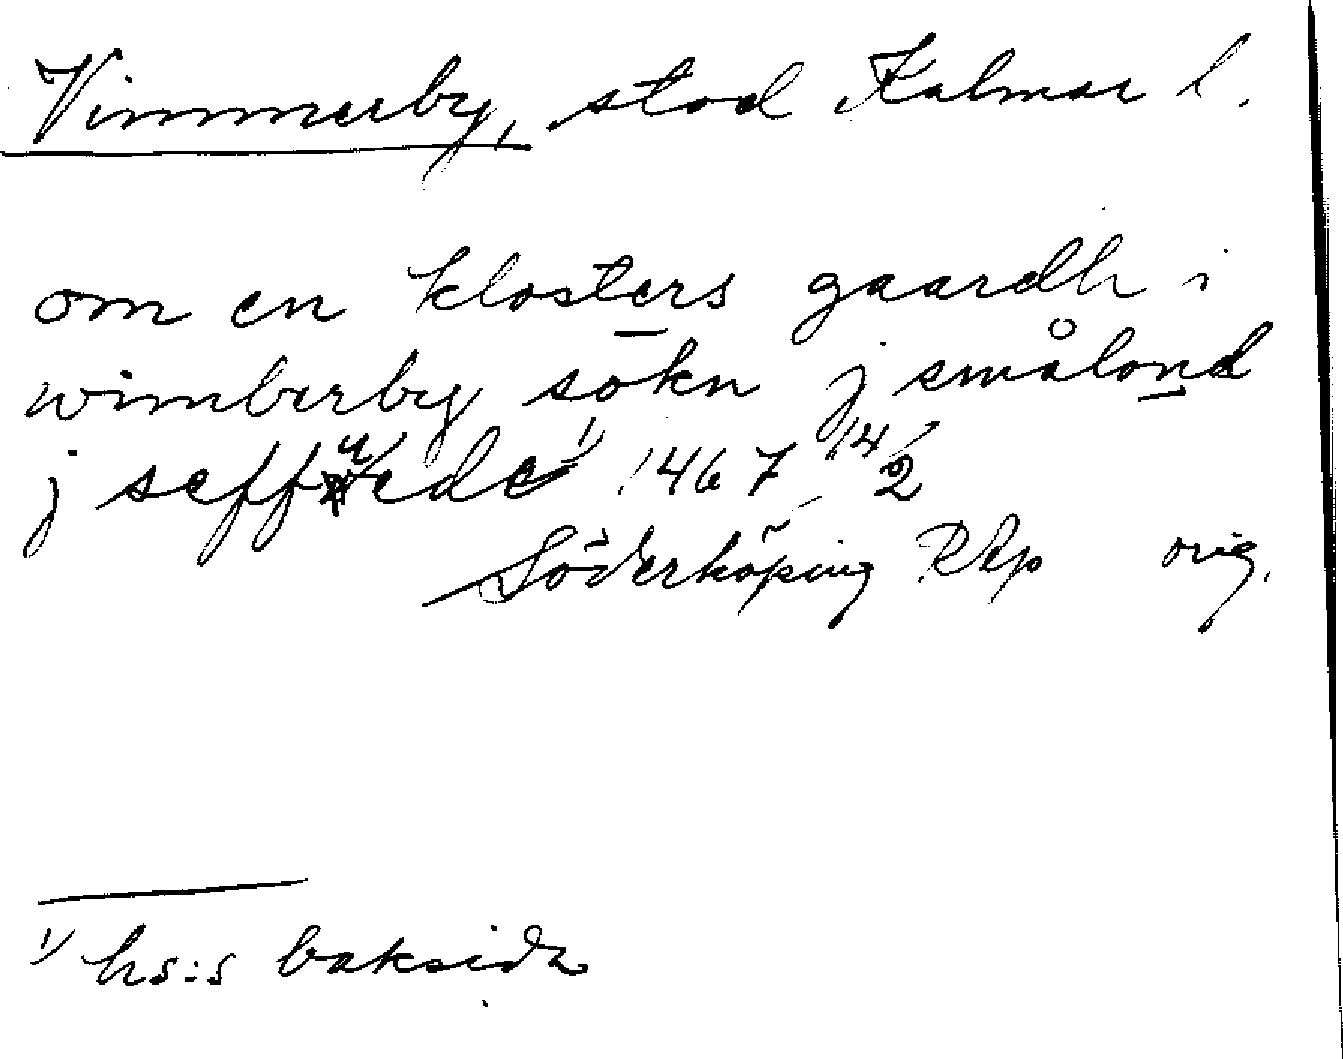 Vimmerby, stad Kalmar l.
om en klosters gaardh i
wimberby sokn j småland
j seffuede 1/ 1467 14/2
Söderköping RAp orig.
1/ hs:s baksida